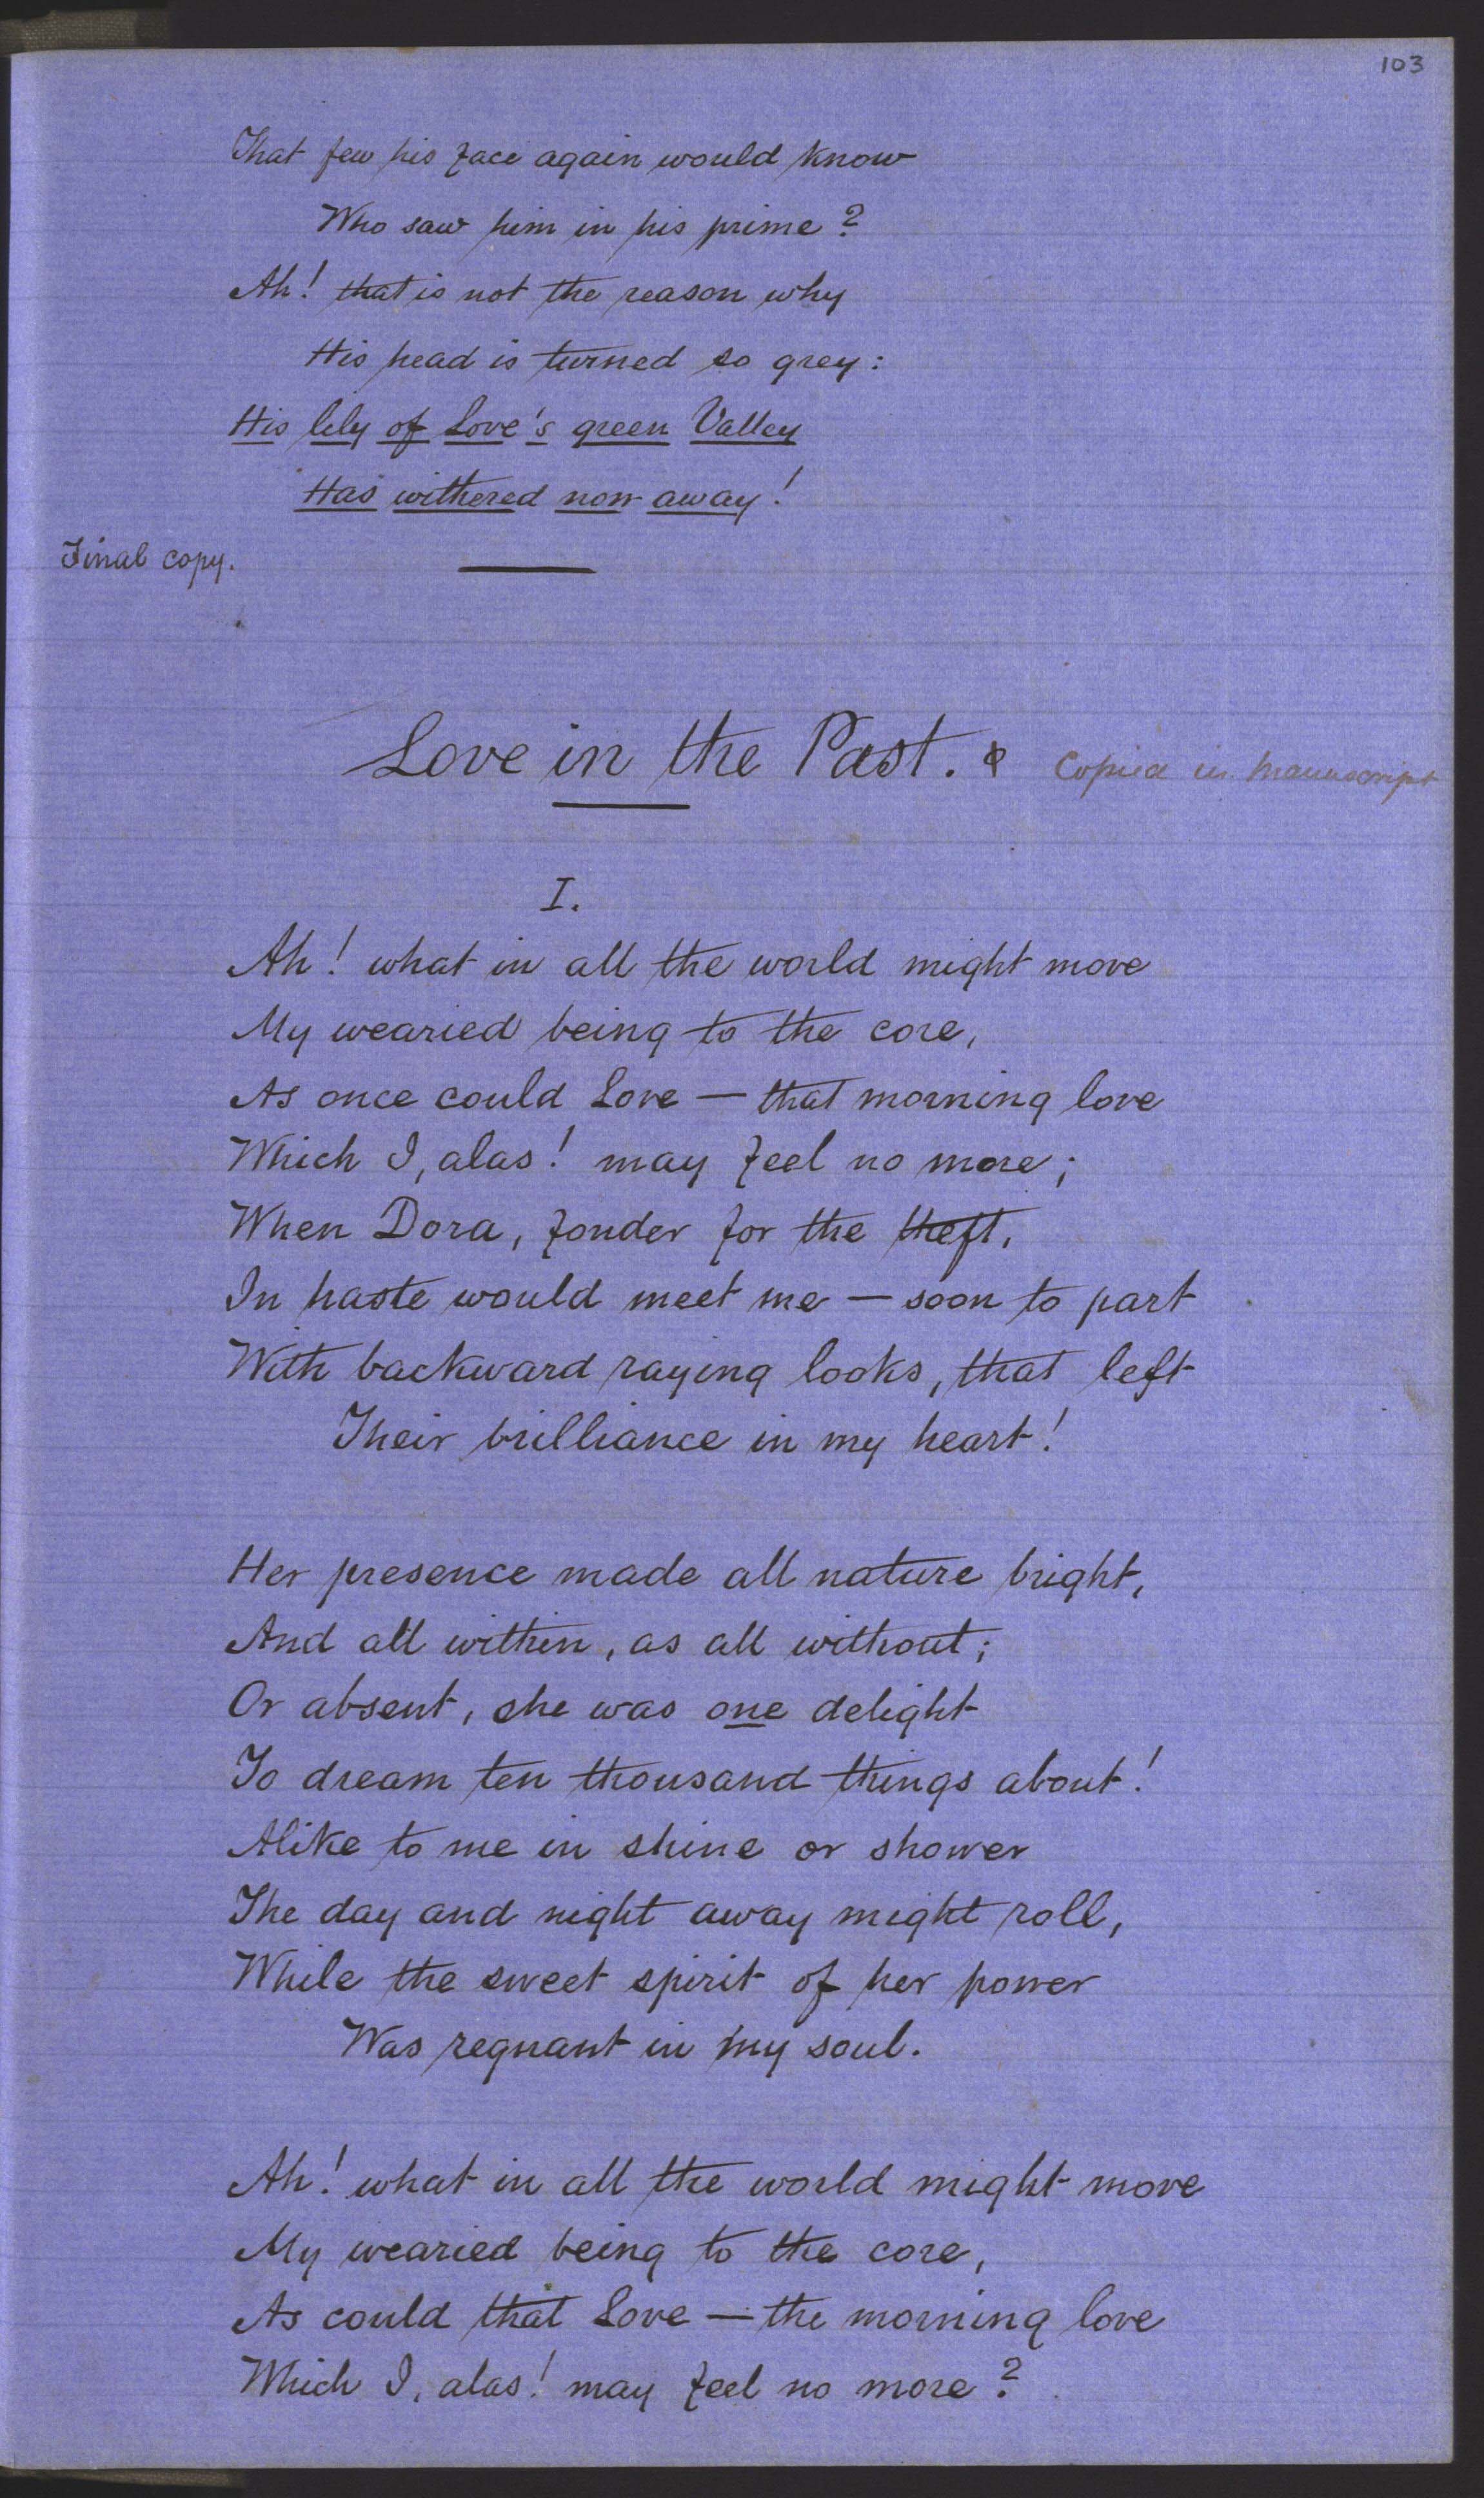 103
That few his face again would know
Who saw him in his prime?
Ah! that is not the reason why
His head is turned so grey:
His lily of Love's green Valley
Has withered now away!
Final copy.
Love in the Past. Copied in Manuscript
I.
Ah! what in all the world might move
My wearied being to the core,
As once could Love — that morning love
Which I, alas! may feel no more;
When Dora, fonder for the theft,
In haste would meet me — soon to part
With backward raying looks, that left
Their brilliance in my heart!
Her presence made all nature bright,
And all within, as all without;
Or absent, she was one delight
To dream ten thousand things about!
Alike to me in shine or shower
The day and night away might roll,
While the sweet spirit of her power
Was regnant in my soul.
Ah! what in all the world might move
My wearied being to the core,
As could that Love — the morning love
Which I, alas! may feel no more?